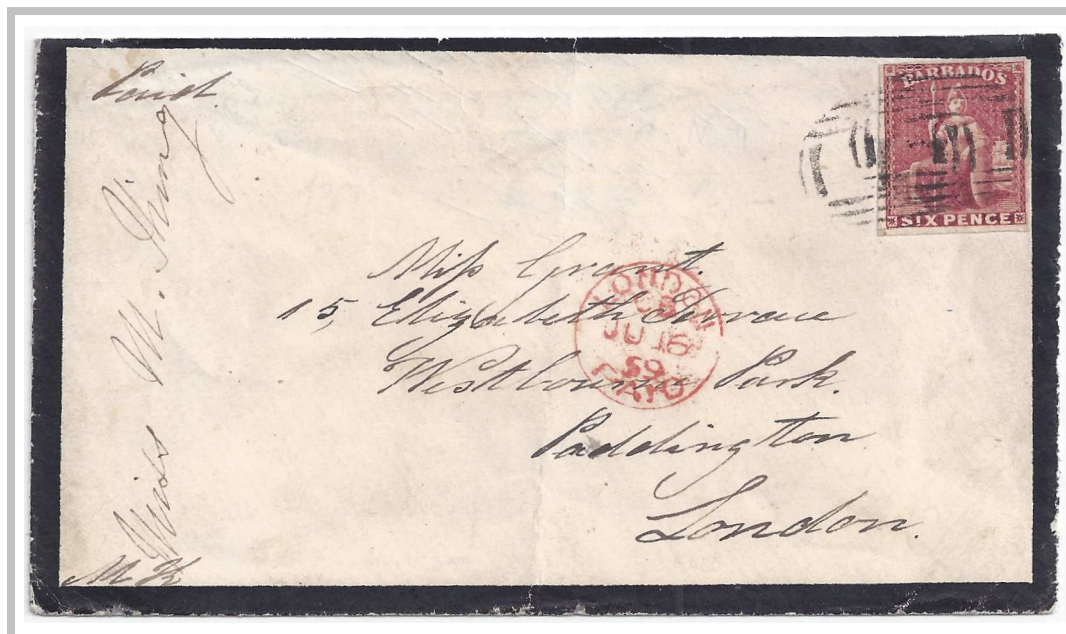 Paid.
BARBADOS
SIX PENCE
Miss Grant.
15, Elizabeth Terrace
Westbourne Park.
Paddington
London.
LONDON
JU 16
59
PAID
Miss M. King
M K